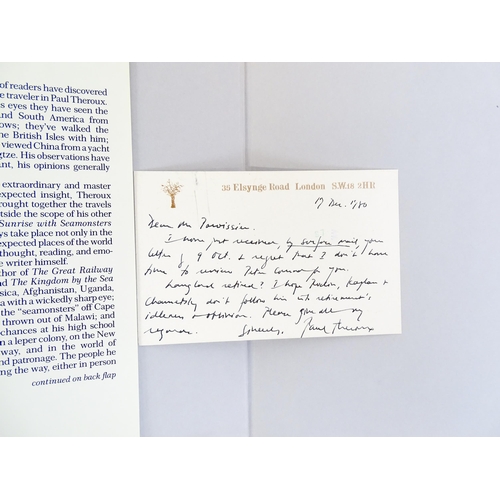 of readers have discovered
e traveler in Paul Theroux.
s eyes they have seen the
nd South America from
ows; they've walked the
he British Isles with him;
viewed China from a yacht
gtze. His observations have
nt, his opinions generally
extraordinary and master
expected insight, Theroux
rought together the travels
tside the scope of his other
Sunrise with Seamonsters
ys take place not only in the
xpected places of the world
thought, reading, and emo-
e writer himself.
thor of The Great Railway
nd The Kingdom by the Sea
sica, Afghanistan, Uganda,
a with a wickedly sharp eye;
the "seamonsters" off Cape
thrown out of Malawi; and
chances at his high school
n a leper colony, on the New
way, and in the world of
and patronage. The people he
ng the way, either in person
continued on back flap
35 Elsynge Road London S.W.18 2HR
17 Dec. 1980
Dear Mr
I have just received, by surface mail, your
letter of 9 Oct. & regret that I don't have
time to review for you.
Langland retired? I hope
& don't follow him into retirement's
idleness & Please give all my
regards. Sincerely, Paul Theroux